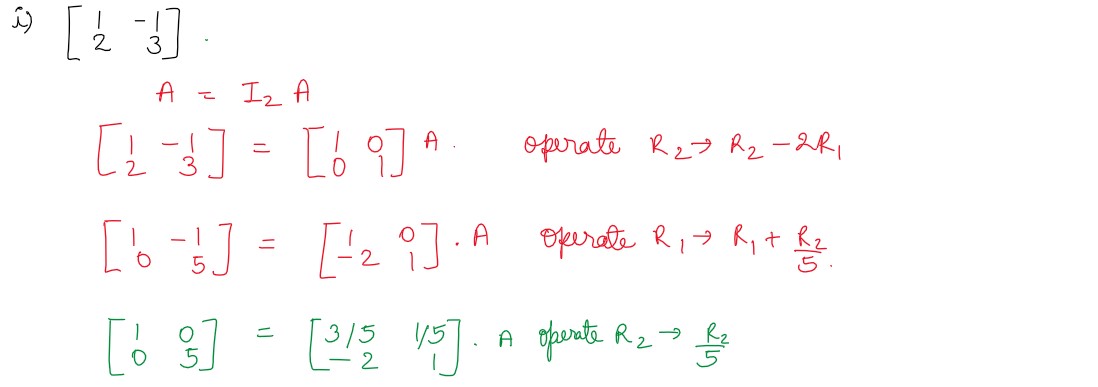 i) [1 -1
2 3] .
A = I₂ A
[1 -1
2 3] = [1 0
0 1] A . operate R₂→ R₂ - 2R₁
[1 -1
0 5] = [1 0
-2 1] . A operate R₁→ R₁ + R₂/5.
[1 0
0 5] = [3/5 1/5
-2 1] . A operate R₂ → R₂/5